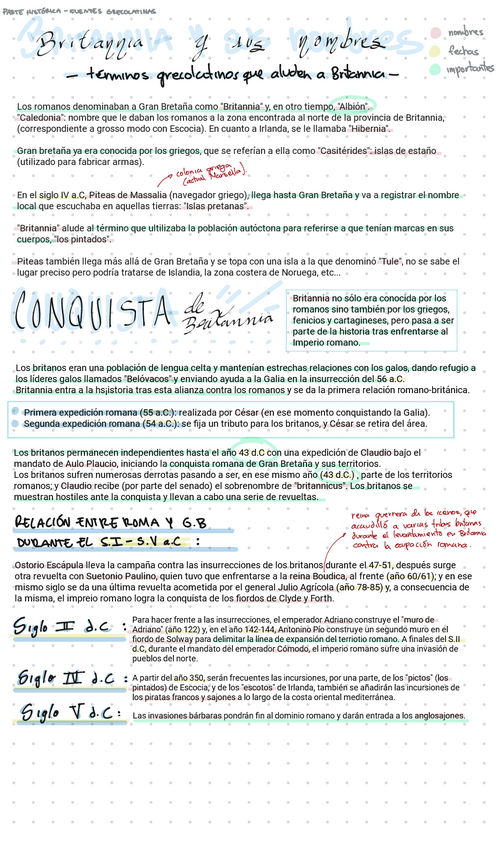 PARTE HISTÓRICA - FUENTES GRECOLATINAS
Britannia y sus nombres
- términos grecolatinos que aluden a Britannia -
nombres
fechas
importantes
Los romanos denominaban a Gran Bretaña como "Britannia" y, en otro tiempo, "Albión".
"Caledonia": nombre que le daban los romanos a la zona encontrada al norte de la provincia de Britannia,
(correspondiente a grosso modo con Escocia). En cuanto a Irlanda, se le llamaba "Hibernia".
Gran bretaña ya era conocida por los griegos, que se referían a ella como "Casitérides": islas de estaño
(utilizado para fabricar armas).
colonia griega
(actual Marsella).
En el siglo IV a.C, Piteas de Massalia (navegador griego), llega hasta Gran Bretaña y va a registrar el nombre
local que escuchaba en aquellas tierras: "Islas pretanas".
"Britannia" alude al término que ultilizaba la población autóctona para referirse a que tenían marcas en sus
cuerpos, "los pintados".
Piteas también llega más allá de Gran Bretaña y se topa con una isla a la que denominó "Tule", no se sabe el
lugar preciso pero podría tratarse de Islandia, la zona costera de Noruega, etc...
CONQUISTA de
Britannia
Britannia no sólo era conocida por los
romanos sino también por los griegos,
fenicios y cartagineses, pero pasa a ser
parte de la historia tras enfrentarse al
Imperio romano.
Los britanos eran una población de lengua celta y mantenían estrechas relaciones con los galos, dando refugio a
los líderes galos llamados "Belóvacos" y enviando ayuda a la Galia en la insurrección del 56 a.C.
Britannia entra a la hsjistoria tras esta alianza contra los romanos y se da la primera relación romano-británica.
Primera expedición romana (55 a.C.): realizada por César (en ese momento conquistando la Galia).
Segunda expedición romana (54 a.C.): se fija un tributo para los britanos, y César se retira del área.
Los britanos permanecen independientes hasta el año 43 d.C con una expedición de Claudio bajo el
mandato de Aulo Plaucio, iniciando la conquista romana de Gran Bretaña y sus territorios.
Los britanos sufren numerosas derrotas pasando a ser, en ese mismo año (43 d.C.) , parte de los territorios
romanos; y Claudio recibe (por parte del senado) el sobrenombre de "britannicus". Los britanos se
muestran hostiles ante la conquista y llevan a cabo una serie de revueltas.
RELACIÓN ENTRE ROMA Y G.B.
DURANTE EL S.I - S.V a.C :
reina guerrera de los icenos, que
acaudilló a varias tribus britanas
durante el levantamiento en Britannia
contra la ocupación romana.
Ostorio Escápula lleva la campaña contra las insurrecciones de los britanos durante el 47-51, después surge
otra revuelta con Suetonio Paulino, quien tuvo que enfrentarse a la reina Boudica, al frente (año 60/61); y en ese
mismo siglo se da una última revuelta acometida por el general Julio Agrícola (año 78-85) y, a consecuencia de
la misma, el impreio romano logra la conquista de los fiordos de Clyde y Forth.
Siglo II d.C :
Para hacer frente a las insurrecciones, el emperador Adriano construye el "muro de
Adriano" (año 122) y, en el año 142-144, Antonino Pío construye un segundo muró en el
fiordo de Solway para delimitar la línea de expansión del terriotio romano. A finales del S.II
d.C, durante el mandato del emperador Cómodo, el imperio romano sufre una invasión de
pueblos del norte.
Siglo IV d.C :
A partir del año 350, serán frecuentes las incursiones, por una parte, de los "pictos" (los
pintados) de Escocia; y de los "escotos" de Irlanda, también se añadirán las incursiones de
los piratas francos y sajones a lo largo de la costa oriental mediterránea.
Siglo V d.C :
Las invasiones bárbaras pondrán fin al dominio romano y darán entrada a los anglosajones.